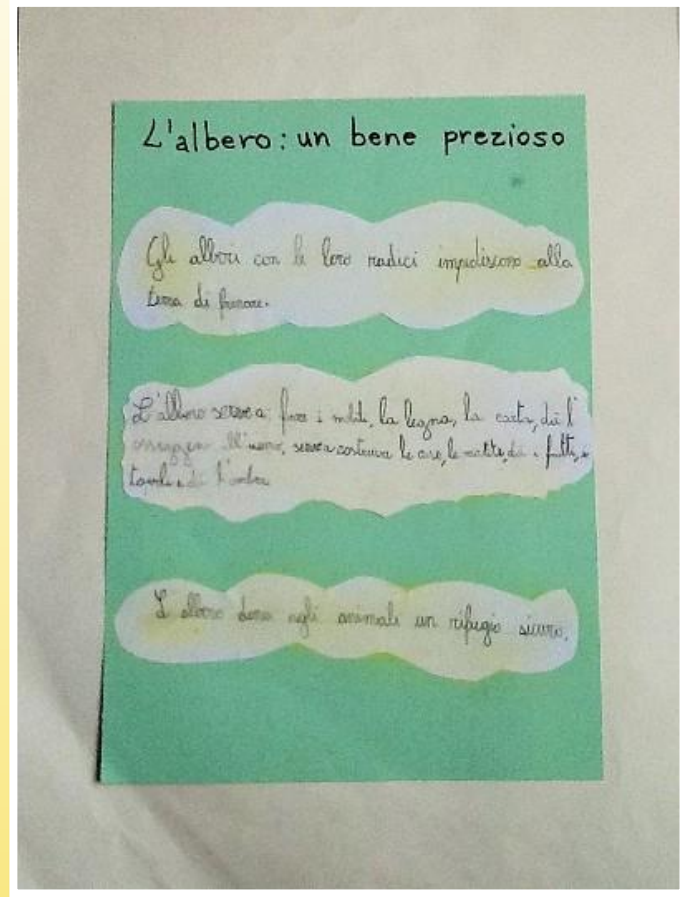 L'albero: un bene prezioso
Gli alberi con le loro radici impediscono alla
terra di franare.
L'albero serve a: fare i mobili, la legna, la carta, dà l'
ossigeno all'uomo, serve a costruire le case, le matite, dà i frutti, i
tavoli e dà l'ombra
L'albero dona agli animali un rifugio sicuro.